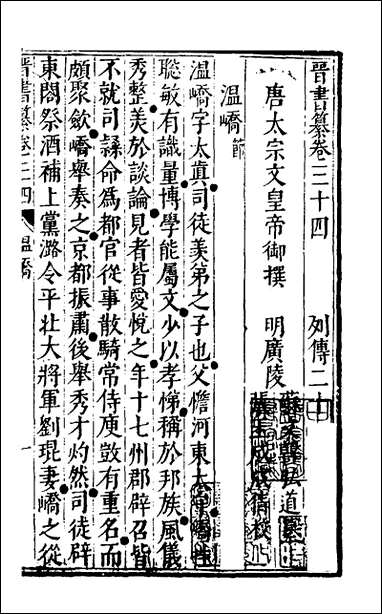 晉書纂卷三十四　列傳二十
唐太宗文皇帝御撰　明廣陵　道
溫嶠節
溫嶠字太眞司徒羨弟之子也父憺河東太守嶠性
聡敏有識量博學能屬文少以孝悌稱於邦族風儀
秀整美於談論見者皆愛悅之年十七州郡辟召皆
不就司隷命爲都官從事散騎常侍庾敱有重名而
頗聚歛嶠舉奏之京都振肅後舉秀才灼然司徒辟
東閣祭酒補上黨潞令平壯大將軍劉琨妻嶠之從
晉書纂卷三四　溫嶠　一